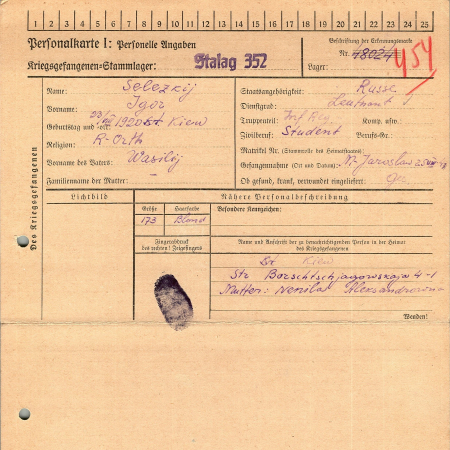 1 2 3 4 5 6 7 8 9 10 11 12 13 14 15 16 17 18 19 20 21 22 23 24 25
Personalkarte I: Personelle Angaben
Kriegsgefangenen-Stammlager: Stalag 352
Beschriftung der Erkennungsmarke
Nr. 48024
Lager:
Des Kriegsgefangenen
Name: Selezkij
Vorname: Igor
Geburtstag und -ort: 1920 Kiew
Religion: R-Orth
Vorname des Vaters: Wasilij
Familienname der Mutter: –
Staatsangehörigkeit: Russe
Dienstgrad: Leutnant
Truppenteil: Inf Reg. Komp. usw.:
Zivilberuf: Student Berufs-Gr.:
Matrikel Nr. (Stammrolle des Heimatstaates):
Gefangennahme (Ort und Datum): Jaroslaw
Ob gesund, krank, verwundet eingeliefert:
Lichtbild
Nähere Personalbeschreibung
Größe Haarfarbe Besondere Kennzeichen:
173 Blond
Fingerabdruck
des rechten! Zeigefingers
Name und Anschrift der zu benachrichtigenden Person in der Heimat
des Kriegsgefangenen
St Kiew
Str Borschtschjagowskaja 4-1
Mutter: Aleksandrowna
Wenden!